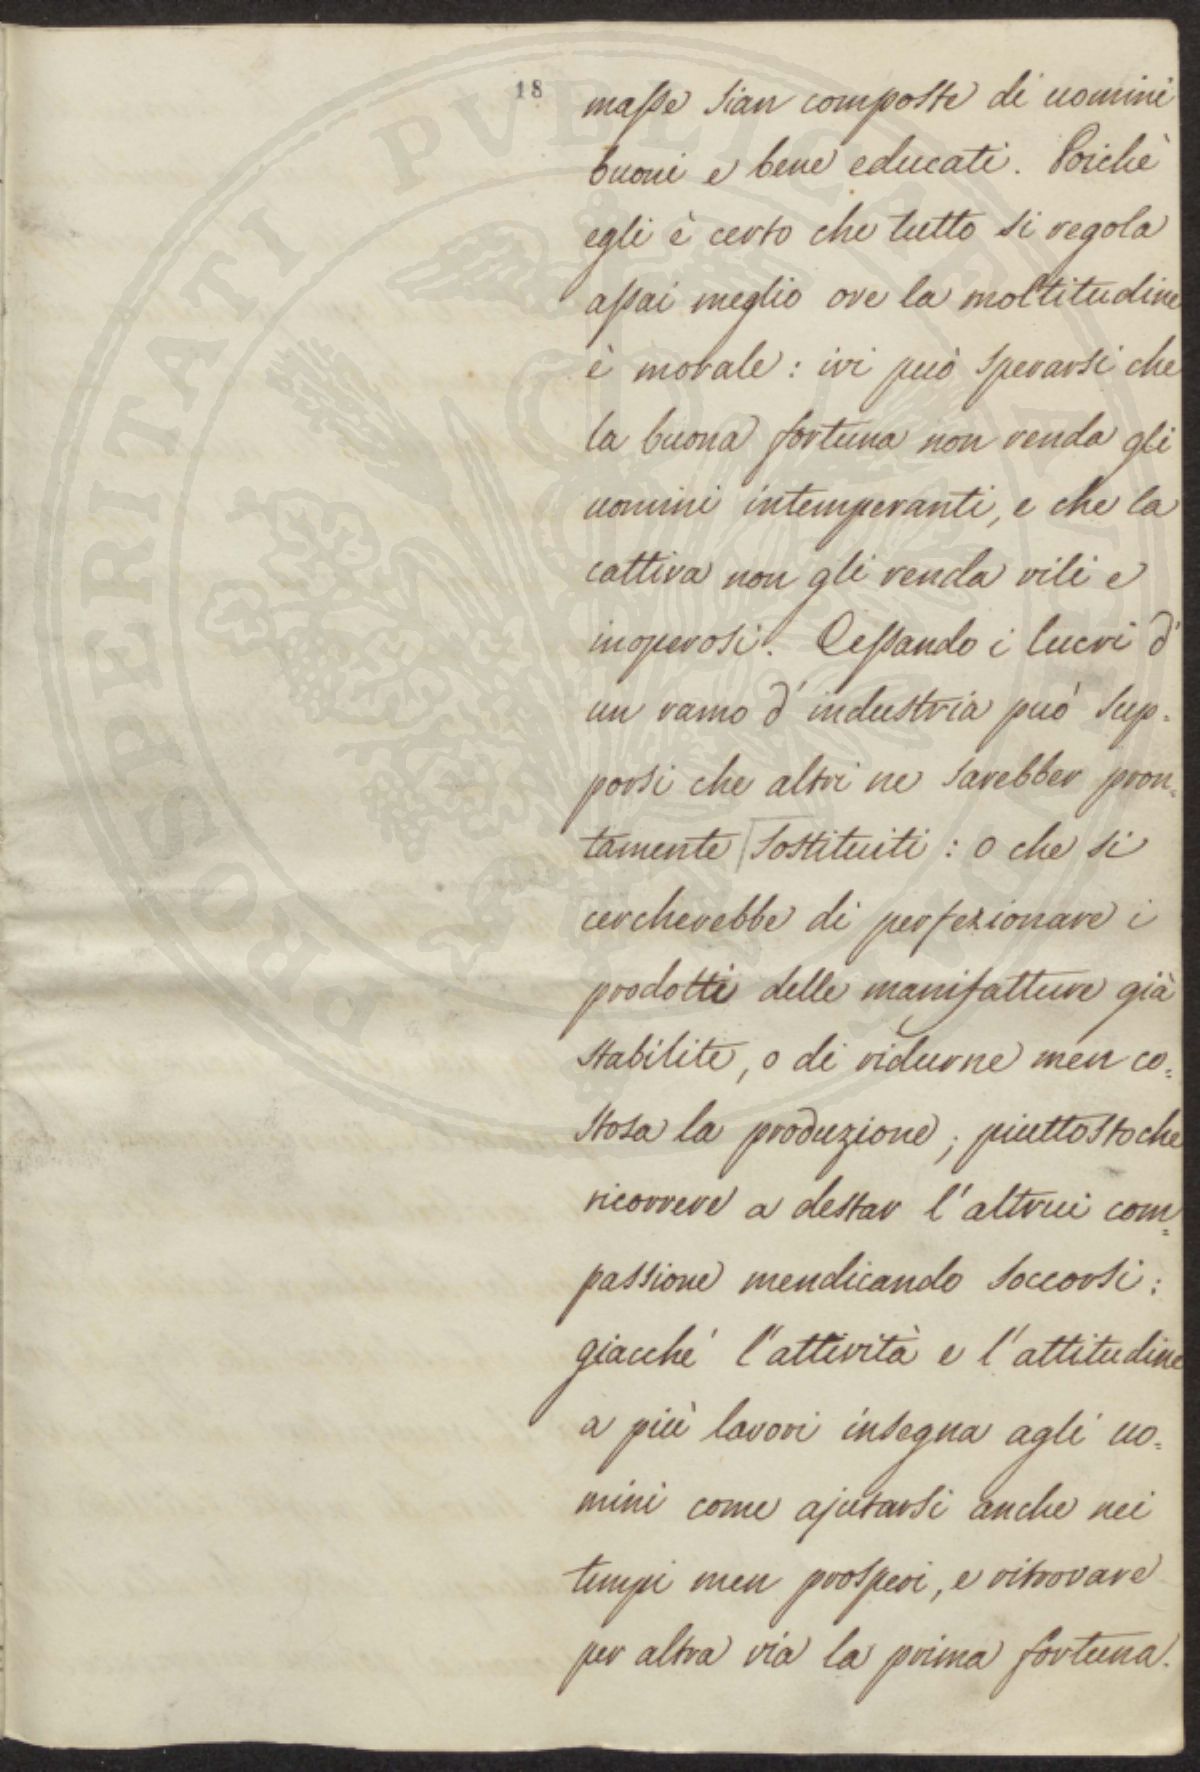 18
masse sian composte di uomini
buoni e bene educati. Poichè
egli è certo che tutto si regola
assai meglio ove la moltitudine
è morale: ivi può sperarsi che
la buona fortuna non renda gli
uomini intemperanti, e che la
cattiva non gli renda vili e
inoperosi. Cessando i lucri d'
un ramo d'industria può sup=
porsi che altri ne sarebber pron=
tamente sostituiti: o che si
cercherebbe di perfezionare i
prodotti delle manifatture già
stabilite, o di ridurne men co=
stosa la produzione; piuttostoche
ricorrere a destar l'altrui com=
passione mendicando soccorsi:
giacché l'attività e l'attitudine
a più lavori insegna agli uo=
mini come ajutarsi anche nei
tempi men prosperi, e ritrovare
per altra via la prima fortuna.
PROSPERITATI PVBLICAE AVGENDAE